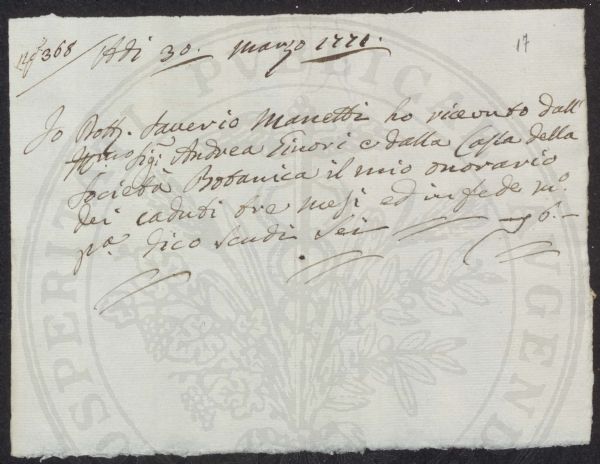 N.º 368 Adi 30. Marzo 1771. 17
Io Dott. Saverio Manetti ho ricevuto dall'
Illmo Sigr. Andrea Ginori e dalla Cassa della
Società Botanica il mio onorario
dei caduti tre mesi ed in fede m.º
pa. dico Scudi Sei 6.—
PROSPERITATI PUBLICAE AUGENDAE